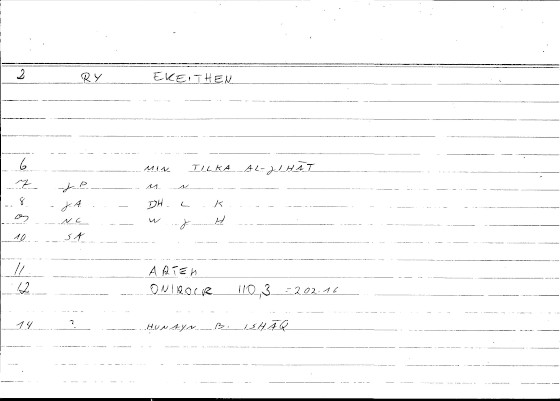 2 RY EKEITHEN
6 MIN TILKA AL-JIHĀT
7 JP M N
8 JA DH L K
9 NC W J H
10 SK
11 ARTEM
12 ONIROCR 110,3 = 202.16
14 ? HUNAYN B. ISHĀQ